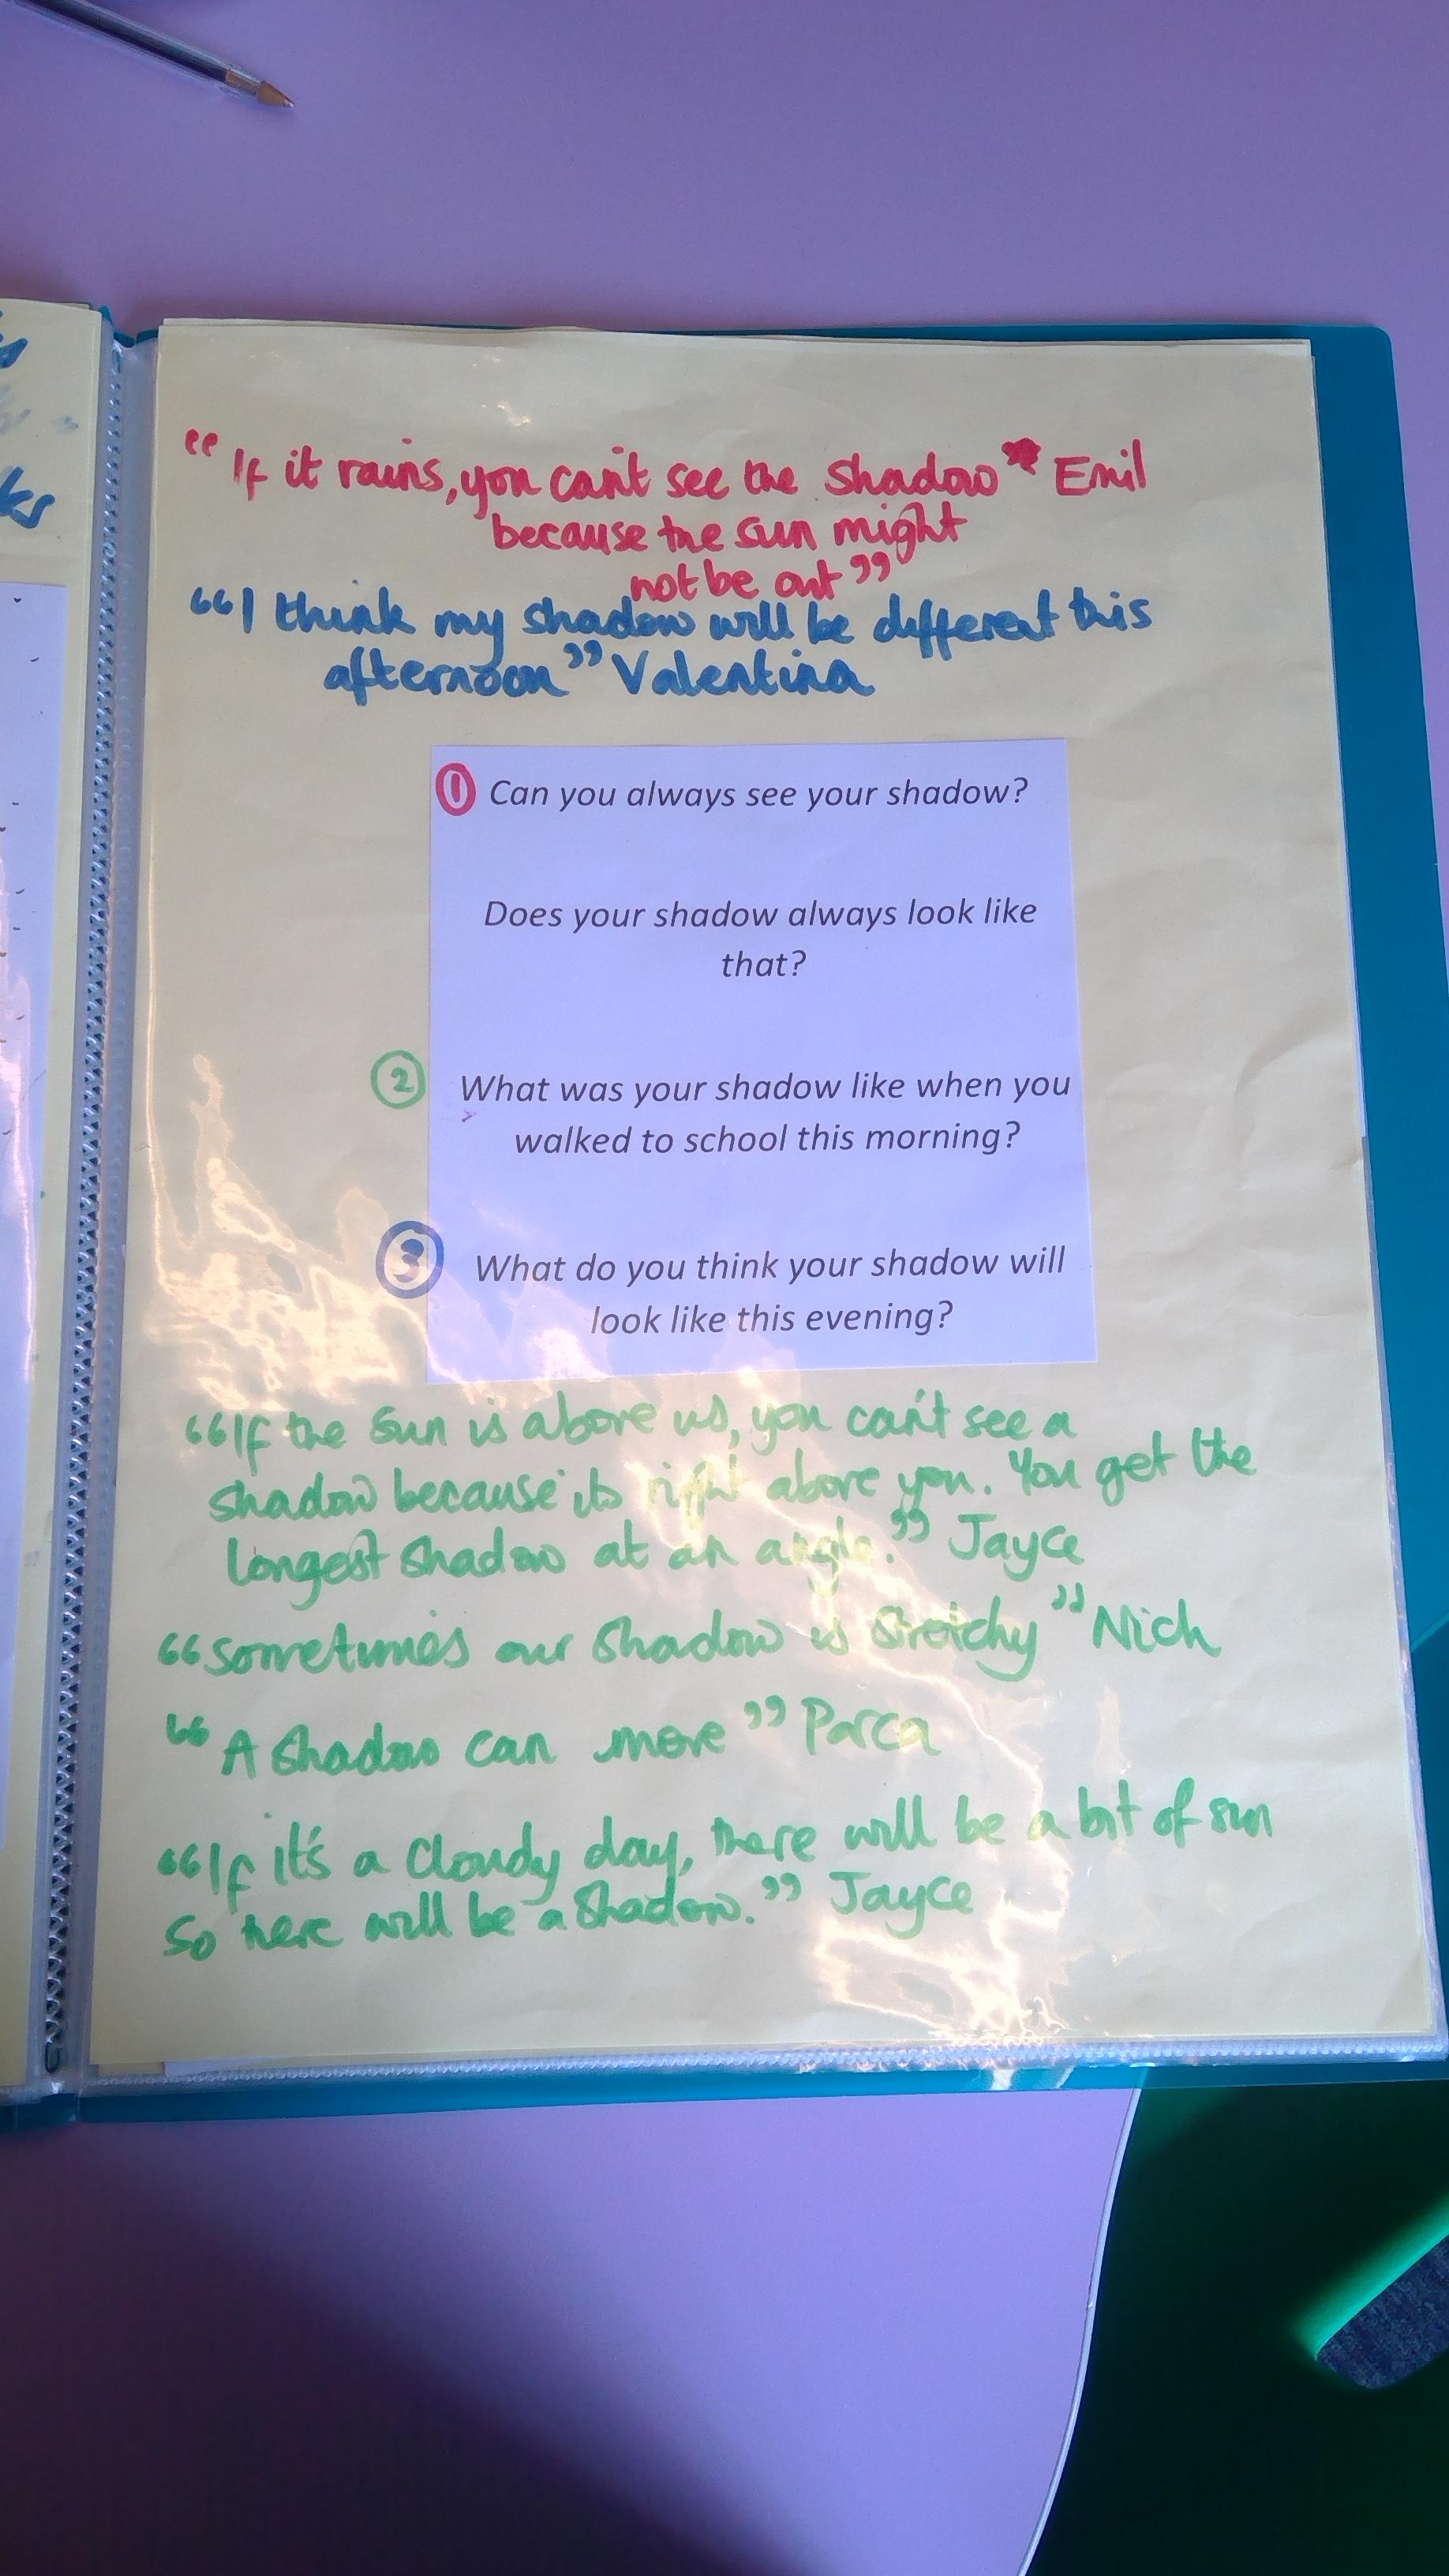 ks
“If it rains, you can't see the shadow” Emil
because the sun might
not be out”
“I think my shadow will be different this
afternoon” Valentina
① Can you always see your shadow?
Does your shadow always look like
that?
② What was your shadow like when you
walked to school this morning?
③ What do you think your shadow will
look like this evening?
“If the sun is above us, you can't see a
shadow because its right above you. You get the
longest shadow at an angle.” Jayce
“sometimes our shadow is stretchy” Nich
“A shadow can move” Parca
“If it's a cloudy day, there will be a bit of sun
so there will be a shadow.” Jayce